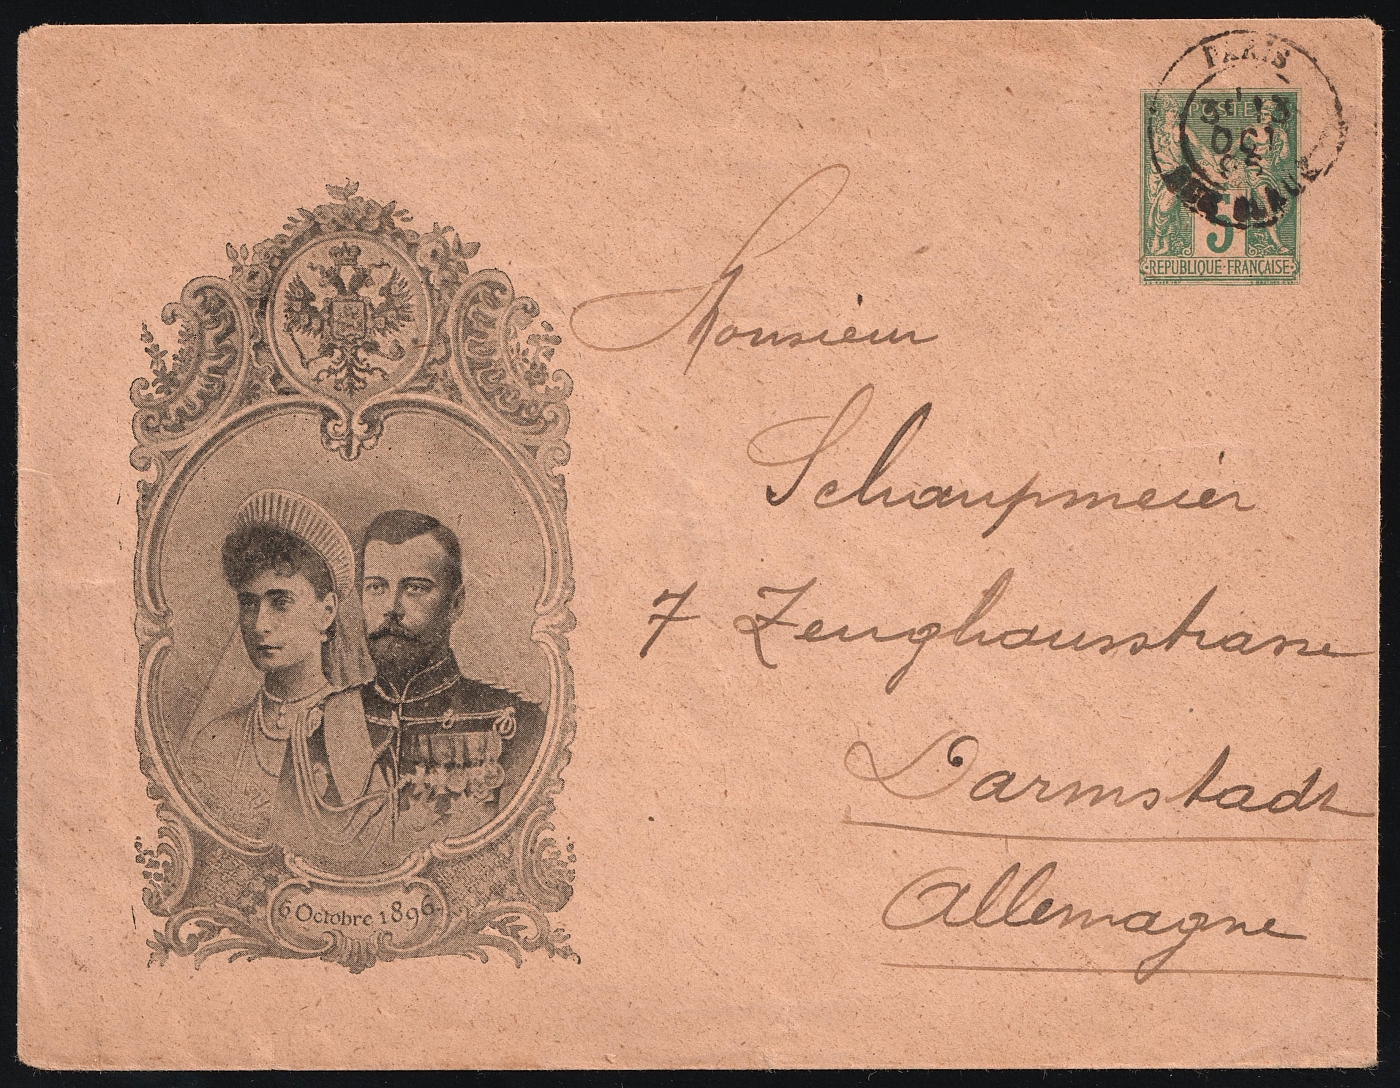 PARIS
13
OCT
POSTE
5
REPUBLIQUE FRANÇAISE
Monsieur
Schaupmeier
7 Zeughausstrasse
Darmstadt
Allemagne
6 Octobre 1896